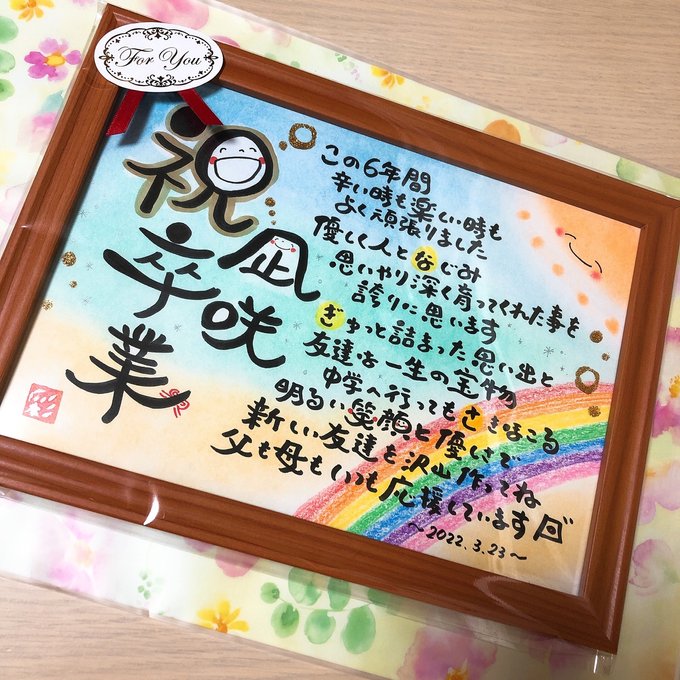 For You
祝
卒業
凪咲
この6年間
辛い時も楽しい時も
よく頑張りました
優しく人となじみ
思いやり深く育ってくれた事を
誇りに思います
ぎゅっと詰まった思い出と
友達は一生の宝物
中学へ行ってもさきほこる
明るい笑顔と優しさで
新しい友達を沢山作ってね
父も母もいつも応援しています
～2022.3.23～